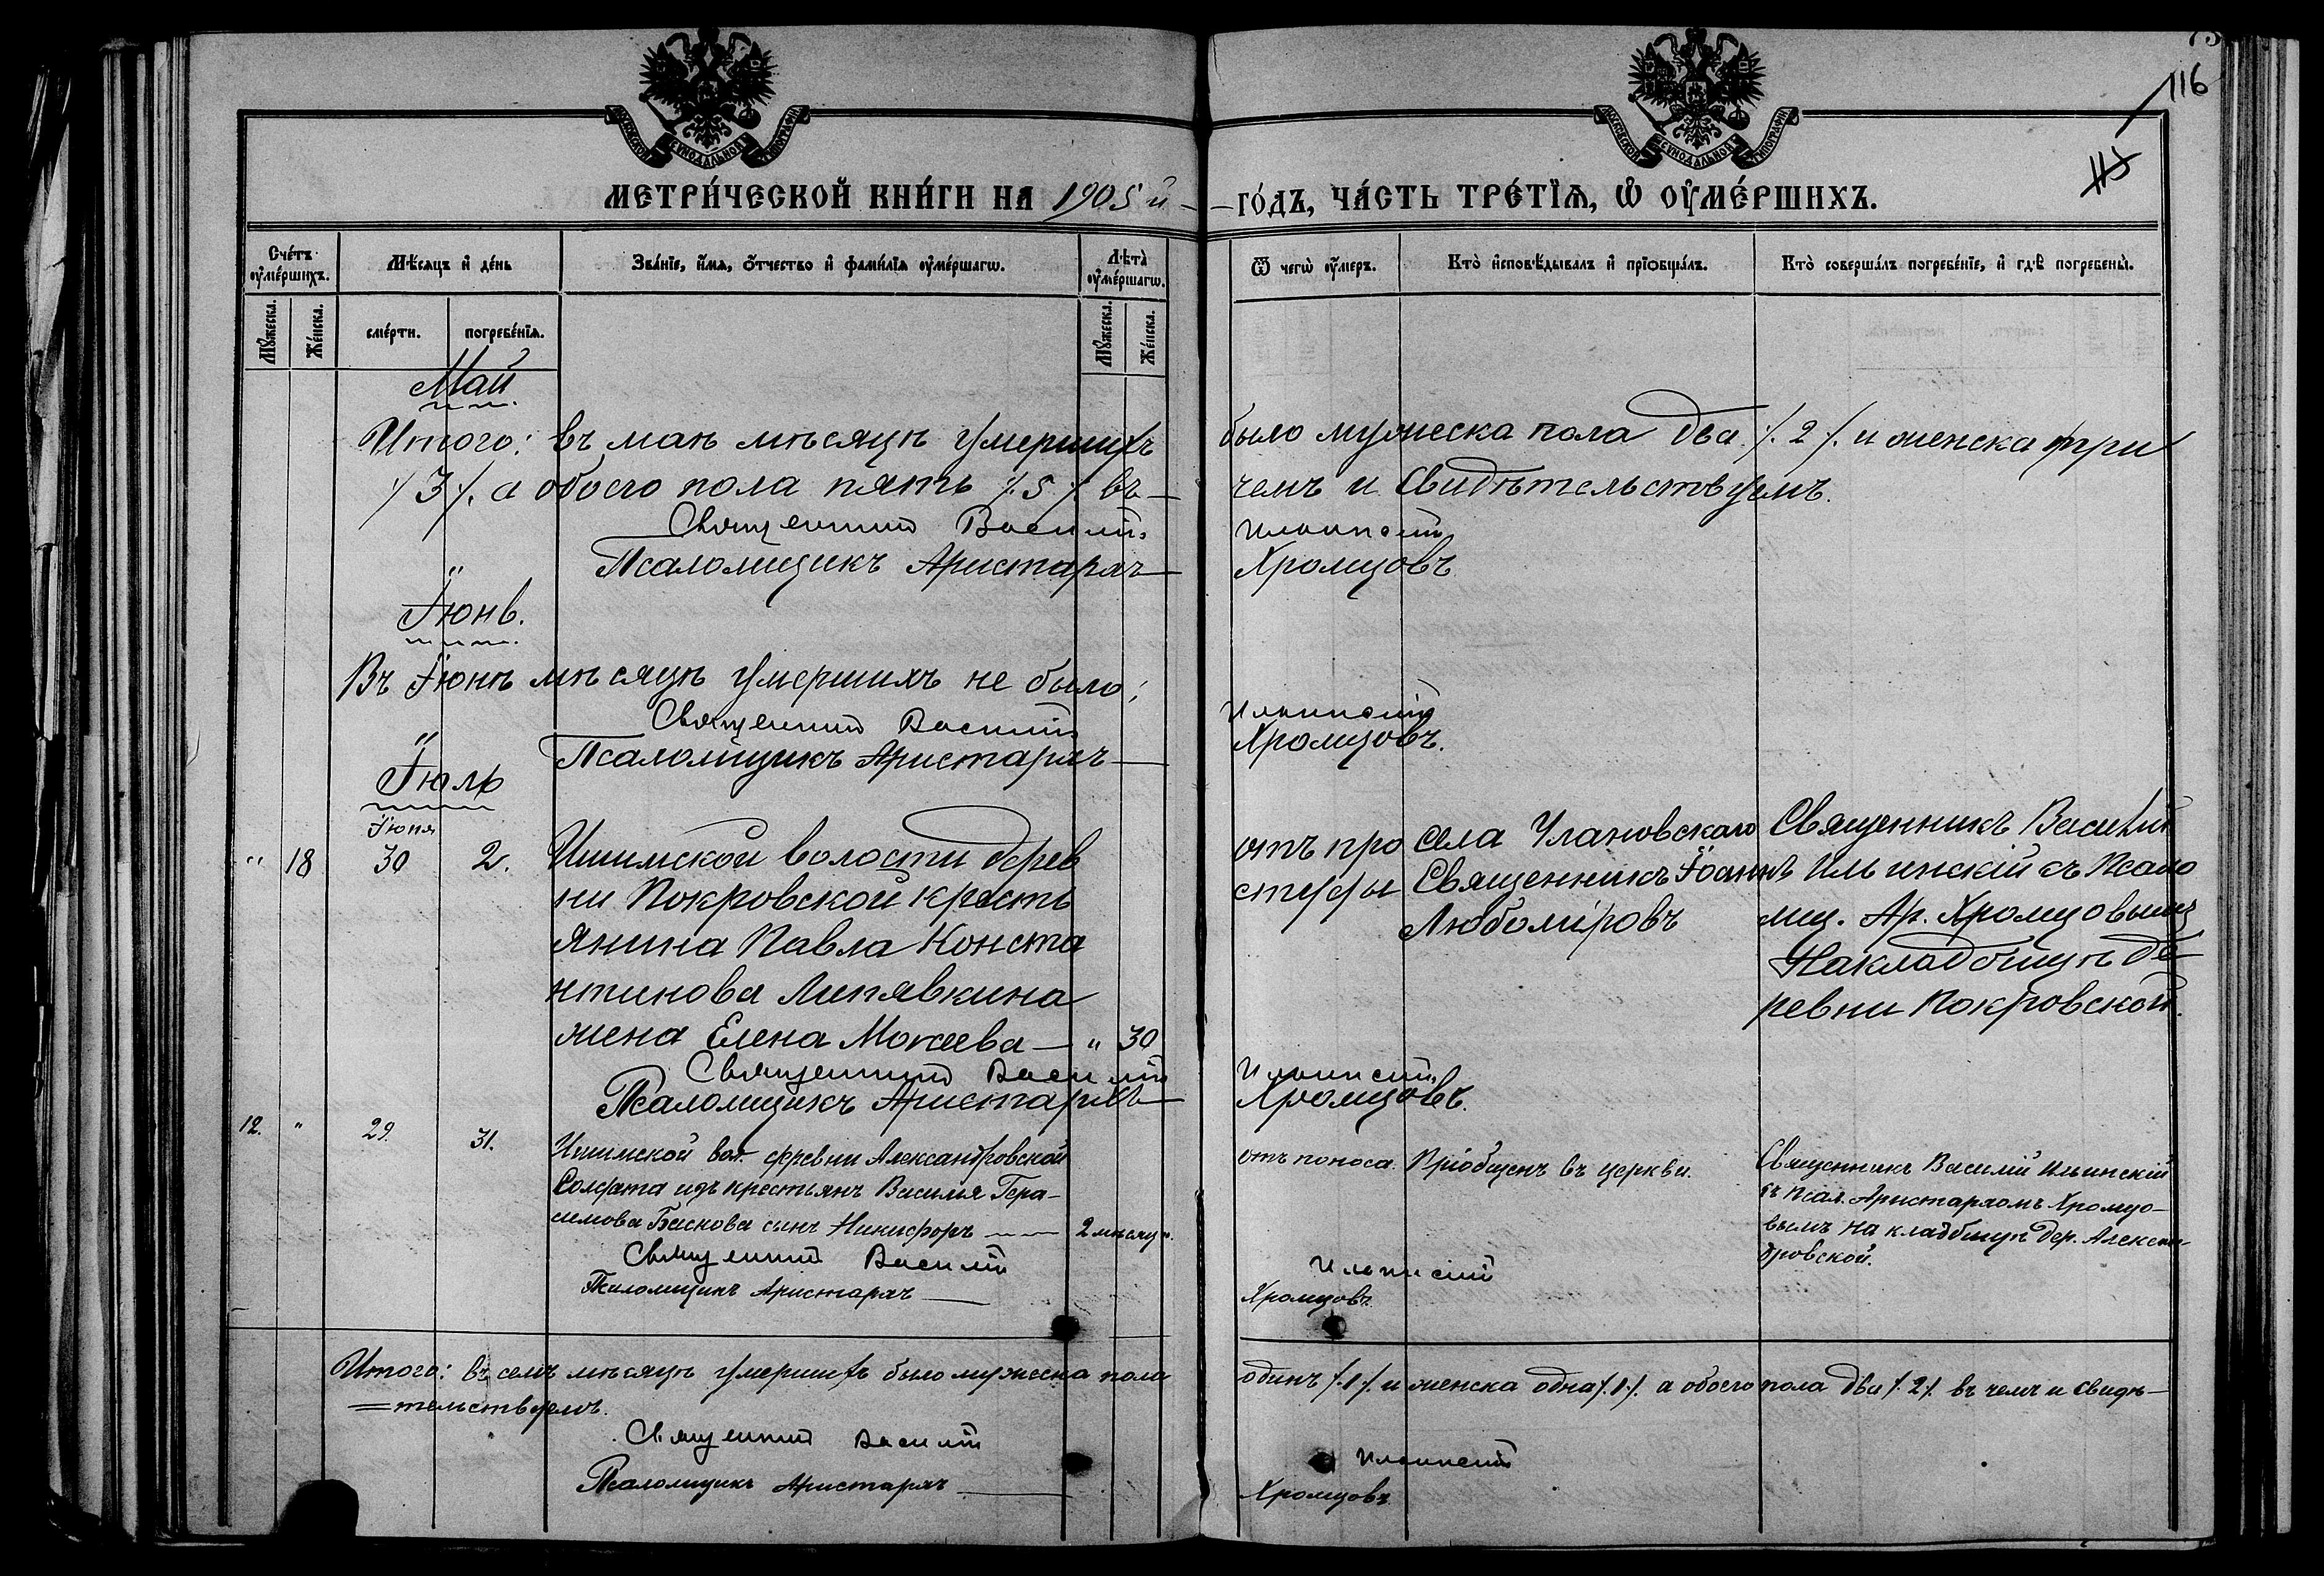 116
115
МОСКОВСКОЙ СѴНОДАЛЬНОЙ ТИПОГРАФІИ
МОСКОВСКОЙ СѴНОДАЛЬНОЙ ТИПОГРАФІИ
МЕТРИ́ЧЕСКОЙ КНИ́ГИ НА 1905 й — — ГО́ДЪ, ЧА́СТЬ ТРЕ́ТЇѦ, Ѡ҆ ОУ҆МЕ́РШИХЪ.
Сче́тъ оу҆ме́ршихъ.
Мѣ́сяцъ и҆ де́нь
Зва́нїе, и҆́мѧ, ѻ҆́тчество и҆ фами́лїѧ оу҆ме́ршагѡ.
Лѣ́та оу҆ме́ршагѡ.
Ѿ чегѡ̀ оу҆́меръ.
Кто̀ и҆сповѣ́дывалъ и҆ прїѡбща́лъ.
Кто̀ соверша́лъ погребе́нїе, и҆ гдѣ̀ погребены̀.
Мꙋ́жеска.
Же́нска.
сме́рти.
погребе́нїѧ.
Мꙋ́жеска.
Же́нска.
Май
Итого: въ маѣ мѣсяцѣ умершихъ было мужеска пола два ∕. 2 ∕. и женска три
∕ 3 ∕. а обоего пола пять ∕. 5 ∕ въ — чемъ и свидѣтельствуемъ.
Священникъ Василій Ильинскій
Псаломщикъ Аристархъ — Хромцовъ
Іюнь.
Въ Іюнѣ мѣсяцѣ умершихъ не было;
Священникъ Василій Ильинскій
Псаломщикъ Аристархъ — Хромцовъ.
Іюль
Іюня
" 18 30 2. Ишимской волости дерев
ни Покровской кресть
янина Павла Конста
нтинова Липявкина
жена Елена Мокеева — " 30
отъ про
студы
Села Улановскаго
Священникъ Іоаннъ
Любоміровъ
Священникъ Василій
Ильинскій съ Псало
мщ. Ар. Хромцовымъ
На кладбищѣ де
ревни Покровской.
Священникъ Василій Ильинскій
Псаломщикъ Аристархъ — Хромцовъ.
12. " 29. 31. Ишимской вол. деревни Александровской
Солдата изъ крестьянъ Василья Гера-
симова Баскова сынъ Никифоръ — 2 мѣсяц.
отъ поноса.
Пріобщенъ въ церкви.
Священникъ Василій Ильинскій
съ Псал. Аристархомъ Хромцо-
вымъ на кладбищѣ дер. Алексан-
дровской.
Священникъ Василій Ильинскій
Псаломщикъ Аристархъ — Хромцовъ
Итого: въ семъ мѣсяцѣ умершихъ было мужеска пола одинъ ∕. 1 ∕. и женска одна ∕. 1 ∕. а обоего пола два ∕. 2 ∕. въ чемъ и свидѣ—
=тельствуемъ.
Священникъ Василій Ильинскій
Псаломщикъ Аристархъ — Хромцовъ